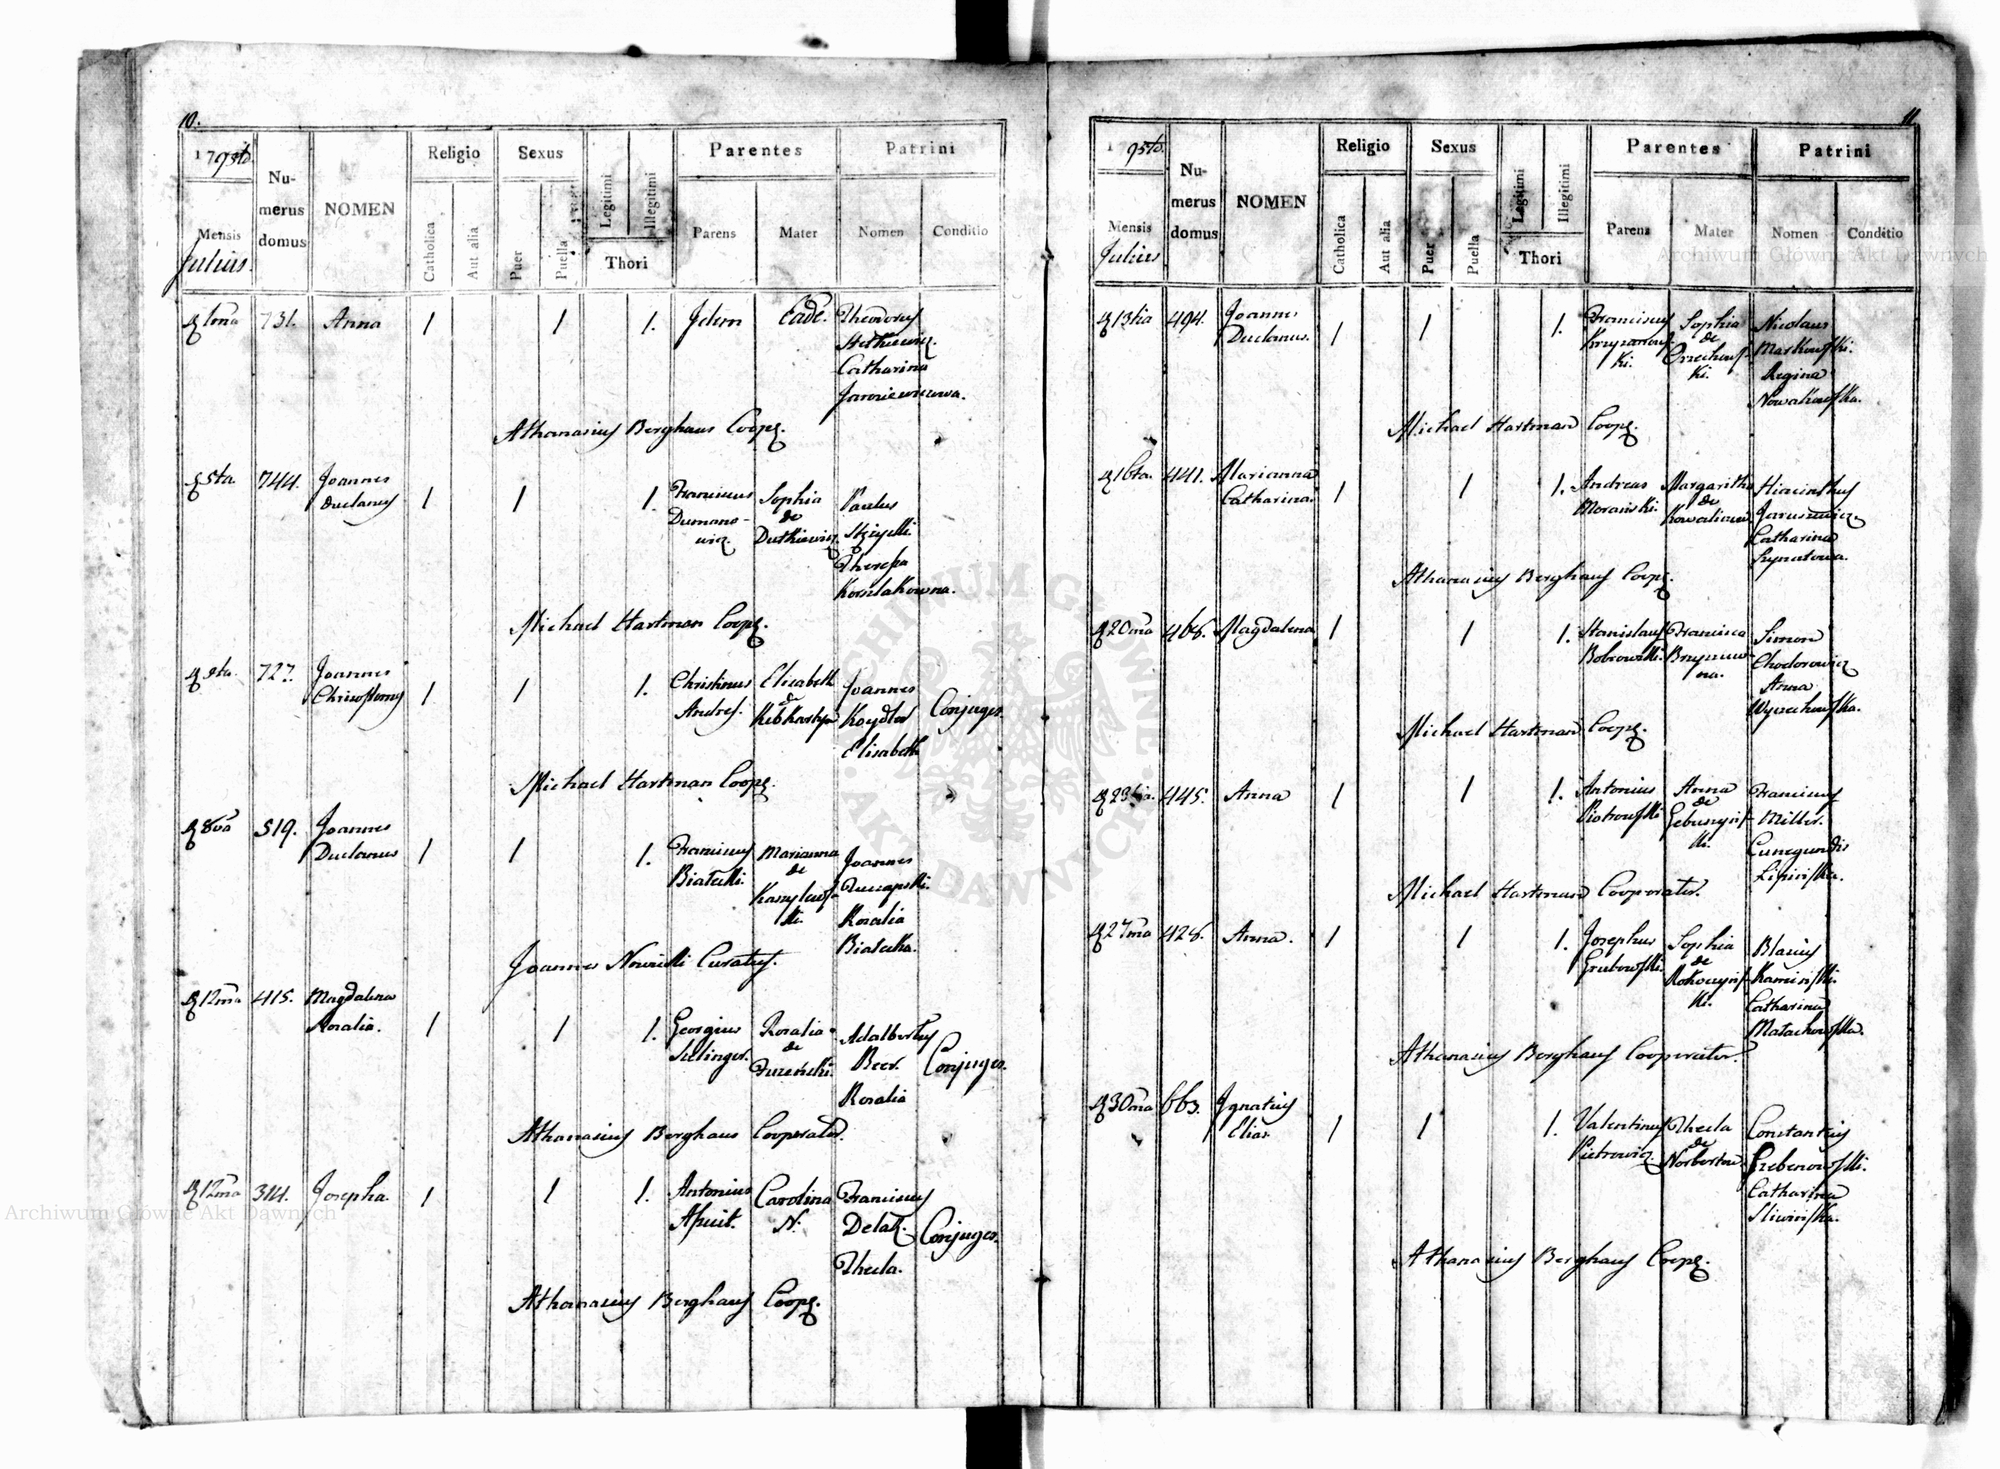 10.
1795to
Mensis
Julius.
Nu-
merus
domus
NOMEN
Religio
Catholica
Aut alia
Sexus
Puer
Puella
Legitimi
Illegitimi
Thori
Parentes
Parens
Mater
Patrini
Nomen
Conditio
1ma 731. Anna 1 1 1. Idem Eadē. Theodorus
Catharina
Athanasius Berghaus Coopr.
5ta 744. Joannes
Duclanus 1 1 1. Franciscus
Dumano-
wicz.
Sophia
de
Dutkiewicz.
Paulus
Theresa
Michael Hartman Coopr.
727. Joannes
1 1 1. Christinus
Andres.
Elisabeth
de
Joannes
Elisabeth
Conjuges
Michael Hartman Coopr.
8va 519. Joannes
Duclanus 1 1 1. Franciscus
Bialecki.
Marianna
de
Joannes
Rosalia
Bialecka.
Joannes Curatus.
12ma 415. Magdalena
Rosalia. 1 1 1. Georgius
Selinger.
Rosalia
de
Adalbertus
Beer.
Rosalia
Conjuges.
Athanasius Berghaus Cooperator.
12ma 314. Josepha. 1 1 1. Antonius
Carolina
N.
Franciscus
Thecla.
Conjuges.
Athanasius Berghaus Coopr.
11
1 95to
Mensis
Julius
Nu-
merus
domus
NOMEN
Religio
Catholica
Aut alia
Sexus
Puer
Puella
Legitimi
Illegitimi
Thori
Parentes
Parens
Mater
Patrini
Nomen
Conditio
13tia 494. Joannes
Duclanus. 1 1 1. Franciscus
Krzyzanows-
ki.
Sophia
de
Orzechows-
ki.
Nicolaus
Markowski.
Regina
Nowakowska.
Michael Hartman Coopr.
16ta. 441. Marianna
Catharina. 1 1 1. Andreas
Morawski.
Margaritha
de
Hiacinthus
Jaruszewicz.
Catharina
Athanasius Berghaus Coopr.
20ma 468. Magdalena 1 1 1. Stanislaus
Bobrowski.
Francisca
Simon
Chodorowicz
Anna
Wyrzchowska.
Michael Hartman Coopr.
23tia. 445. Anna 1 1 1. Antonius
Piotrowski
Anna
de
Franciscus
Miller.
Cunegundis
Lipinska.
Michael Hartman Cooperator.
27ma 428. Anna. 1 1 1. Josephus
Grabowski.
Sophia
de
Blasius
Kaminski.
Catharina
Matachowska.
Athanasius Berghaus Cooperator.
30ma 663. Ignatius
Elias. 1 1 1. Valentinus
Pietrowicz.
Thecla
de
Constantius
Grebenowski.
Catharina
Sliwinska.
Athanasius Berghaus Coopr.
ARCHIWUM GŁÓWNE
AKT DAWNYCH
Archiwum Główne Akt Dawnych
Archiwum Główne Akt Dawnych